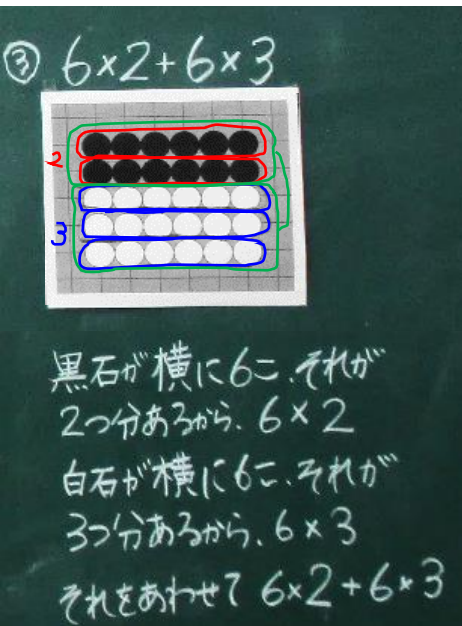 ③ 6×2+6×3
2
3
黒石が横に6こ、それが
2つ分あるから、6×2
白石が横に6こ、それが
3つ分あるから、6×3
それをあわせて 6×2+6×3